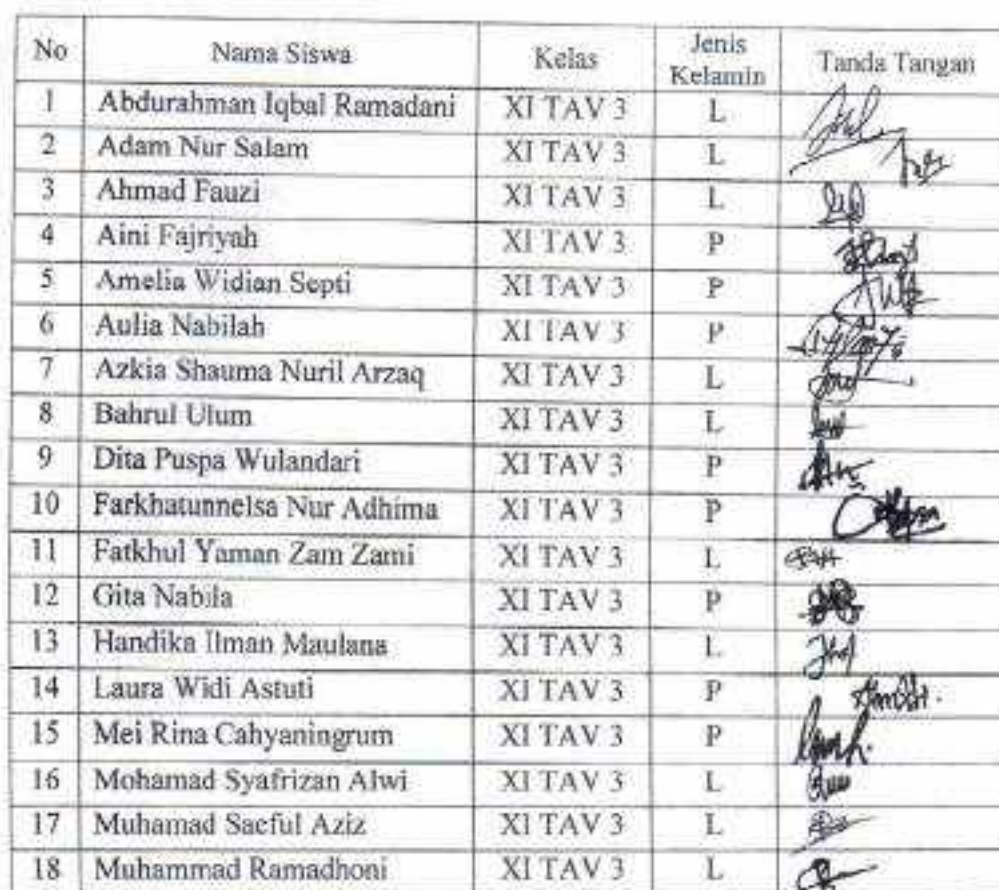 No Nama Siswa Kelas Jenis Kelamin Tanda Tangan
1 Abdurahman Iqbal Ramadani XI TAV 3 L
2 Adam Nur Salam XI TAV 3 L
3 Ahmad Fauzi XI TAV 3 L
4 Aini Fajriyah XI TAV 3 P
5 Amelia Widian Septi XI TAV 3 P
6 Aulia Nabilah XI TAV 3 P
7 Azkia Shauma Nuril Arzaq XI TAV 3 L
8 Bahrul Ulum XI TAV 3 L
9 Dita Puspa Wulandari XI TAV 3 P
10 Farkhatunnelsa Nur Adhima XI TAV 3 P
11 Fatkhul Yaman Zam Zami XI TAV 3 L
12 Gita Nabila XI TAV 3 P
13 Handika Ilman Maulana XI TAV 3 L
14 Laura Widi Astuti XI TAV 3 P
15 Mei Rina Cahyaningrum XI TAV 3 P
16 Mohamad Syafrizan Alwi XI TAV 3 L
17 Muhamad Saeful Aziz XI TAV 3 L
18 Muhammad Ramadhoni XI TAV 3 L